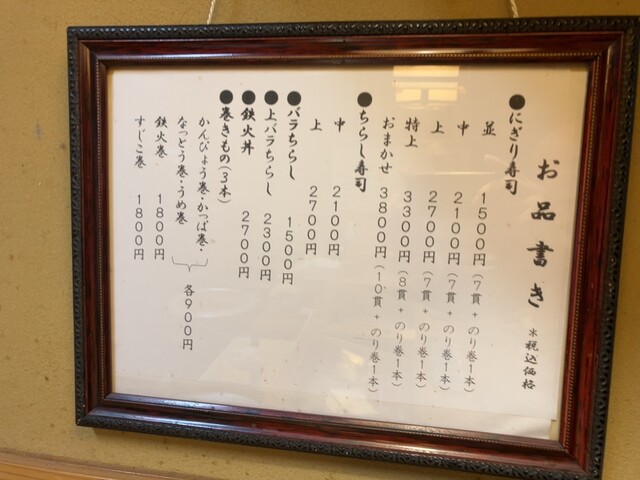 お品書き ※税込価格
●にぎり寿司
並 1500円(7貫+のり巻1本)
中 2100円(7貫+のり巻1本)
上 2700円(7貫+のり巻1本)
特上 3300円(8貫+のり巻1本)
おまかせ 3800円(10貫+のり巻1本)
●ちらし寿司
中 2100円
上 2700円
●バラちらし 1500円
●上バラちらし 2300円
●鉄火丼 2700円
●巻きもの(3本)
かんぴょう巻・かっぱ巻・
なっとう巻・うめ巻
各900円
鉄火巻 1800円
すじこ巻 1800円